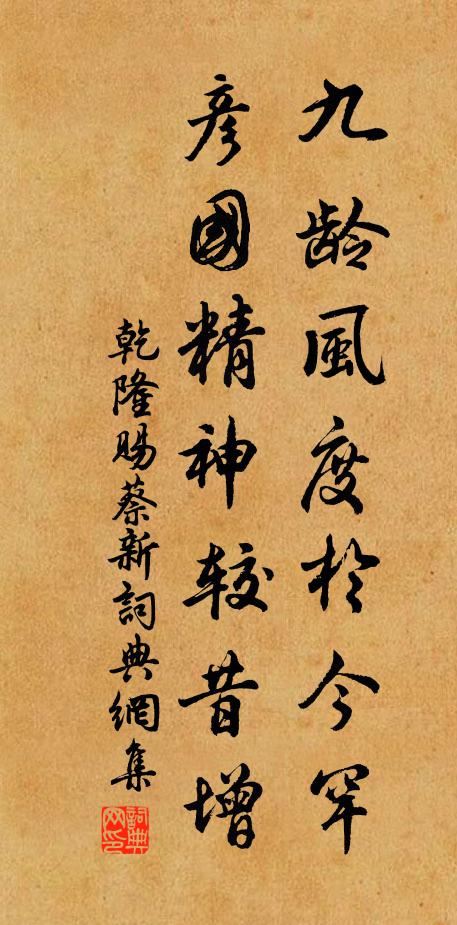 九龄風度於今罕
彦國精神較昔增
乾隆賜蔡新詞典網集
詞典網印